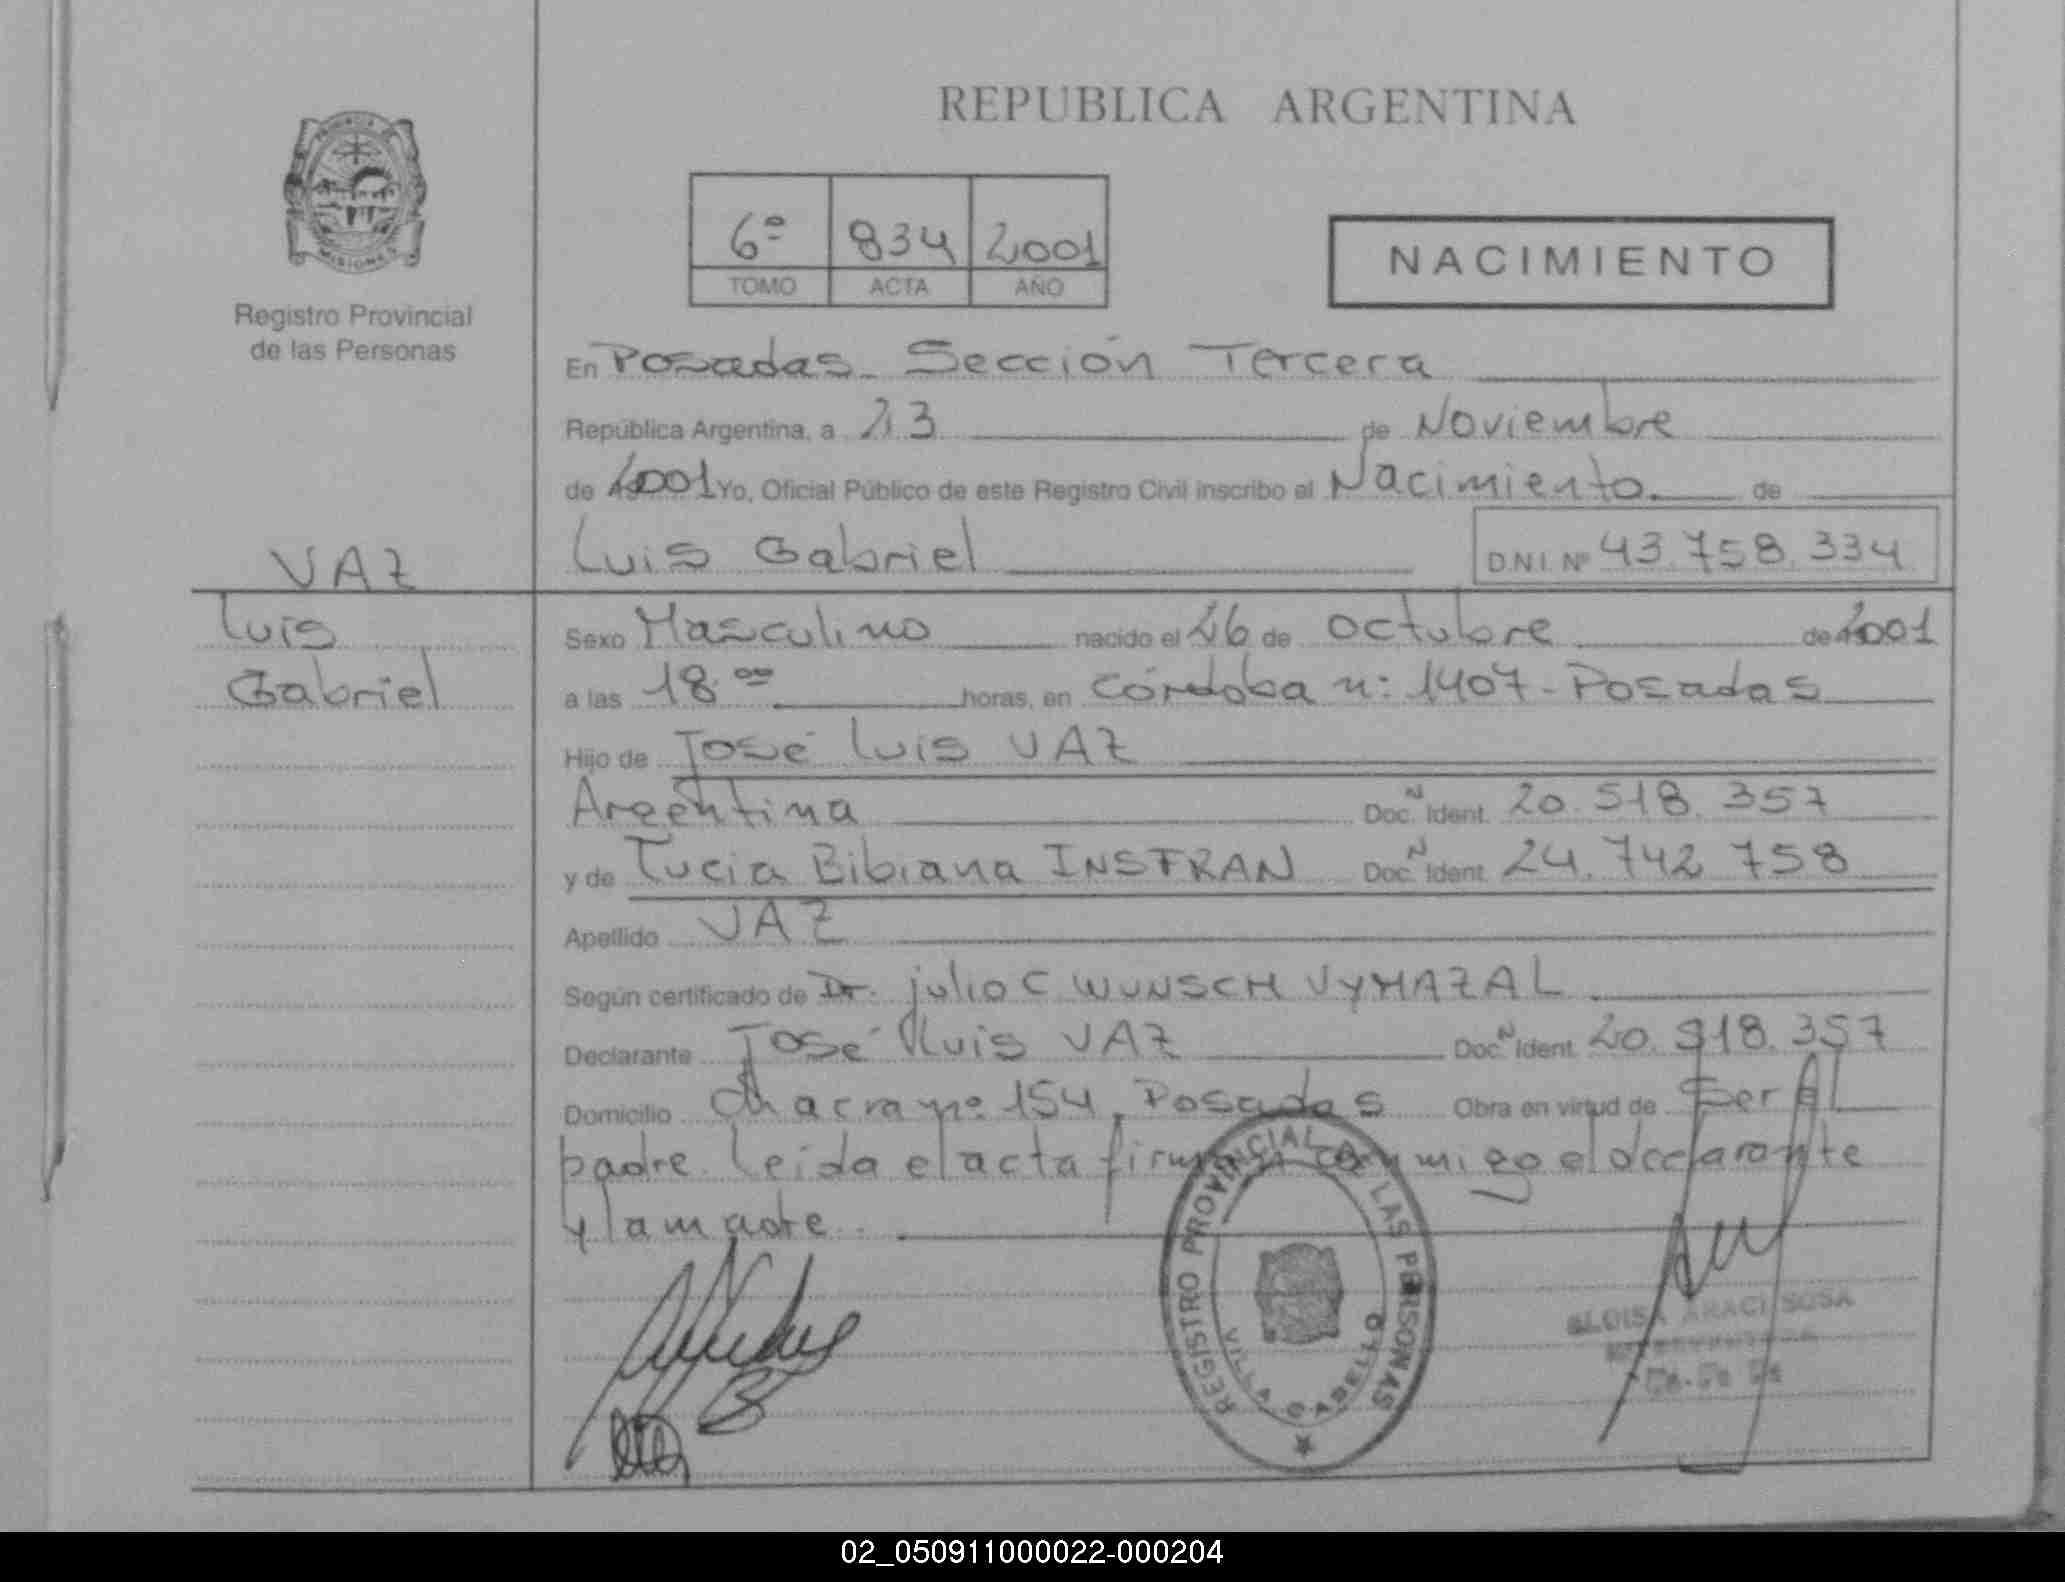 REPUBLICA ARGENTINA
PROVINCIA DE
MISIONES
Registro Provincial
de las Personas
6º 834 2001
TOMO ACTA AÑO
NACIMIENTO
En Posadas. Sección Tercera
República Argentina, a 23 de Noviembre
de 2001 Yo, Oficial Público de este Registro Civil inscribo el Nacimiento. de
Luis Gabriel D.N.I. Nº 43.758.334
VAZ
Luis
Gabriel
Sexo Masculino nacido el 26 de octubre de 2001
a las 18.00 horas, en Córdoba n: 1407 - Posadas
Hijo de José Luis VAZ
Argentina Doc. N Ident. 20.518.357
y de Lucia Bibiana INSFRAN Doc. N Ident. 24.742.758
Apellido VAZ
Según certificado de Dr. julio C WUNSCH VYMAZAL
Declarante José Luis VAZ Doc. N Ident. 20.518.357
Domicilio Chacra nº 154, Posadas Obra en virtud de Ser el
padre. Leida el acta firman conmigo el declarante
y la madre.
REGISTRO PROVINCIAL DE LAS PERSONAS
VILLA CABELLO
ARACI SOSA
02_050911000022-000204